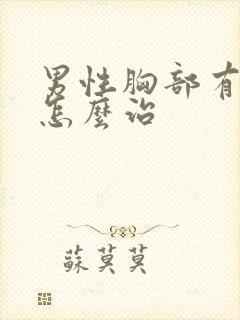 男性胸部有
怎麼治
蘇莫莫